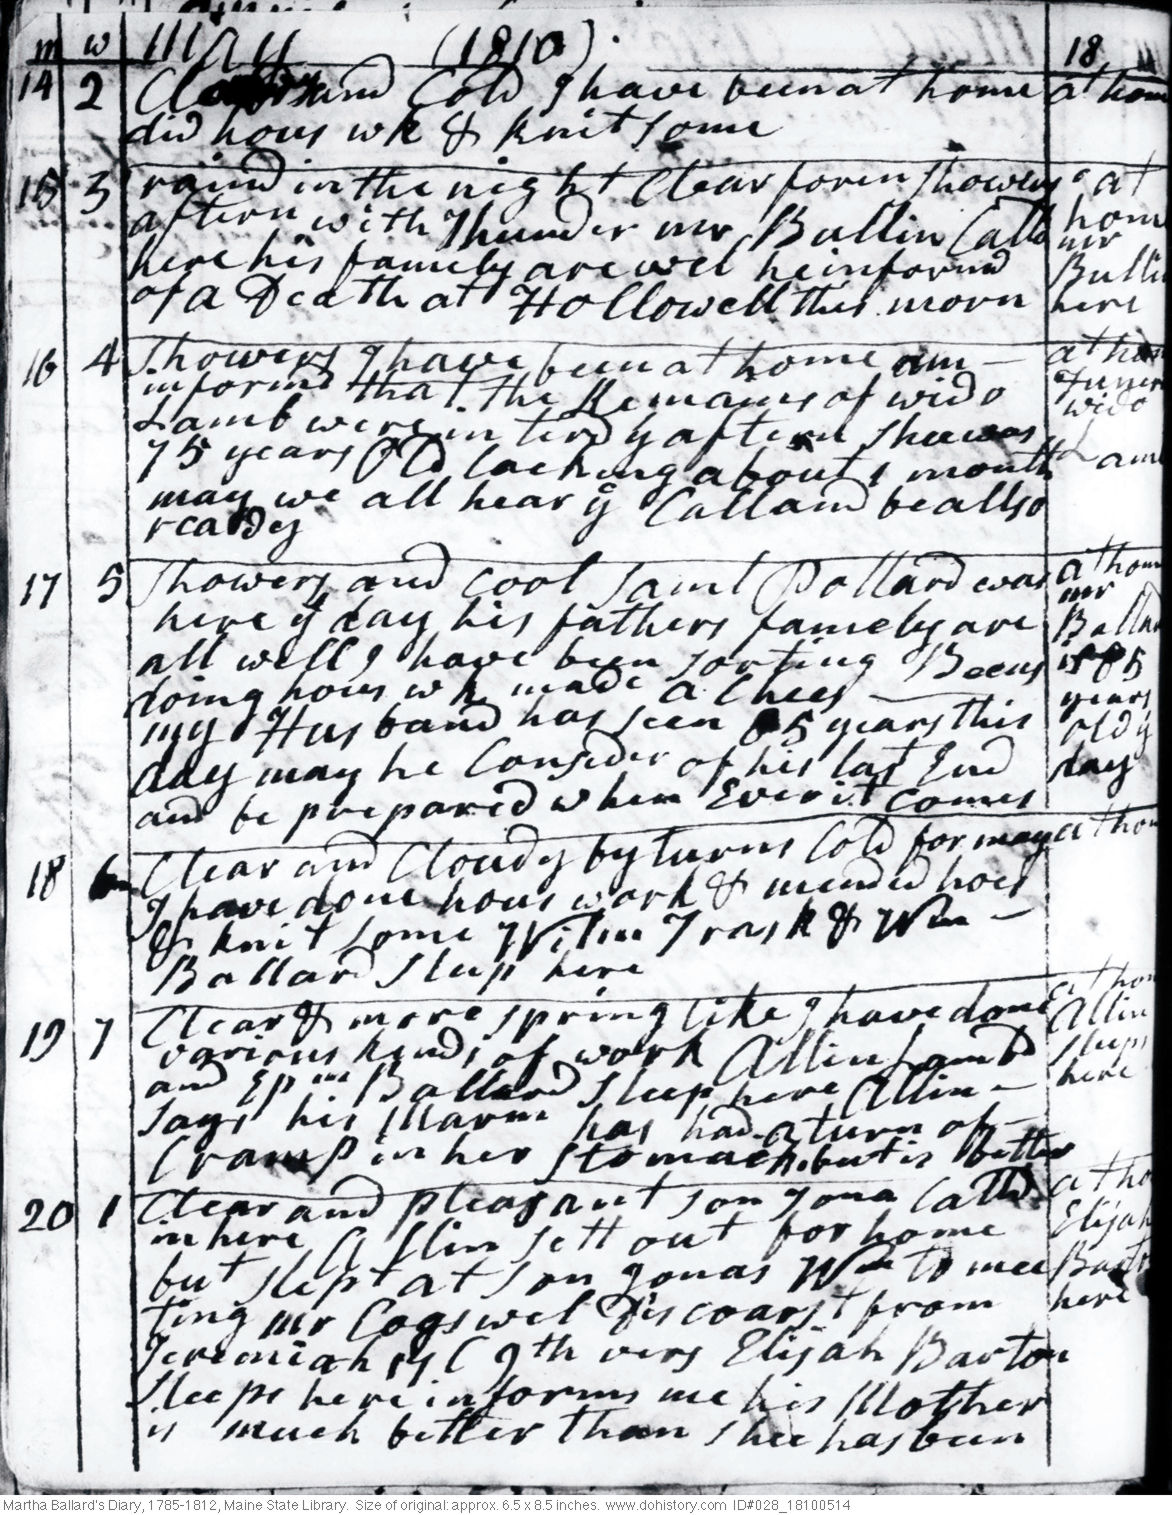 m w May (1810). 18
14 2 Clear and Cold I have been at home at home
did hous wk & knit some
15 3 raind in the night Clear foren Showers at
aftern with Thunder mr Bullin Calld home
here his famely are wel he informd mr
of a Death at Hollowell this morn Bullin
here
16 4 Showers I have been at home am – at home
informd that the Remains of wido Funeral
Lamb were in terd y aftern shee was wido
75 years Old lacking about 1 month Lamb
may we all hear ye Call and be allso
ready
17 5 Showers and Cool Saml Pollard was at home
here ye day his fathers famely are mr
all well I have been sorting Beens Ballard
doing hous wk made a Chees is 85
my Husband has seen 85 years this years
day may he Consider of his last End old ye
and be prepared when Ever it comes day
18 6 Clear and Cloudy by turns Cold for may at home
I have done hous work & mended hoes
& knit some Wilm Trask & Wm –
Ballard sleep here
19 7 Clear & more spring like I have done at home
various kinds of work Allin Lambd Allin
and Epm Ballard sleep here Allin – sleeps
says his Marm has had a turn of – here
Cramp in her stomach but is Better
20 1 Clear and pleasant son Jona Calld at home
in here Allin sett out for home Elijah
but slept at son Jonas Wm to mee Barton
ting mr Cogswel Discoarst from here
Jeremiah 17 C 9th vers Elijah Barton
sleeps here informs me his Mother
is much better than shee has been
Martha Ballard's Diary, 1785-1812, Maine State Library. Size of original: approx. 6.5 x 8.5 inches. www.dohistory.com ID#028_18100514